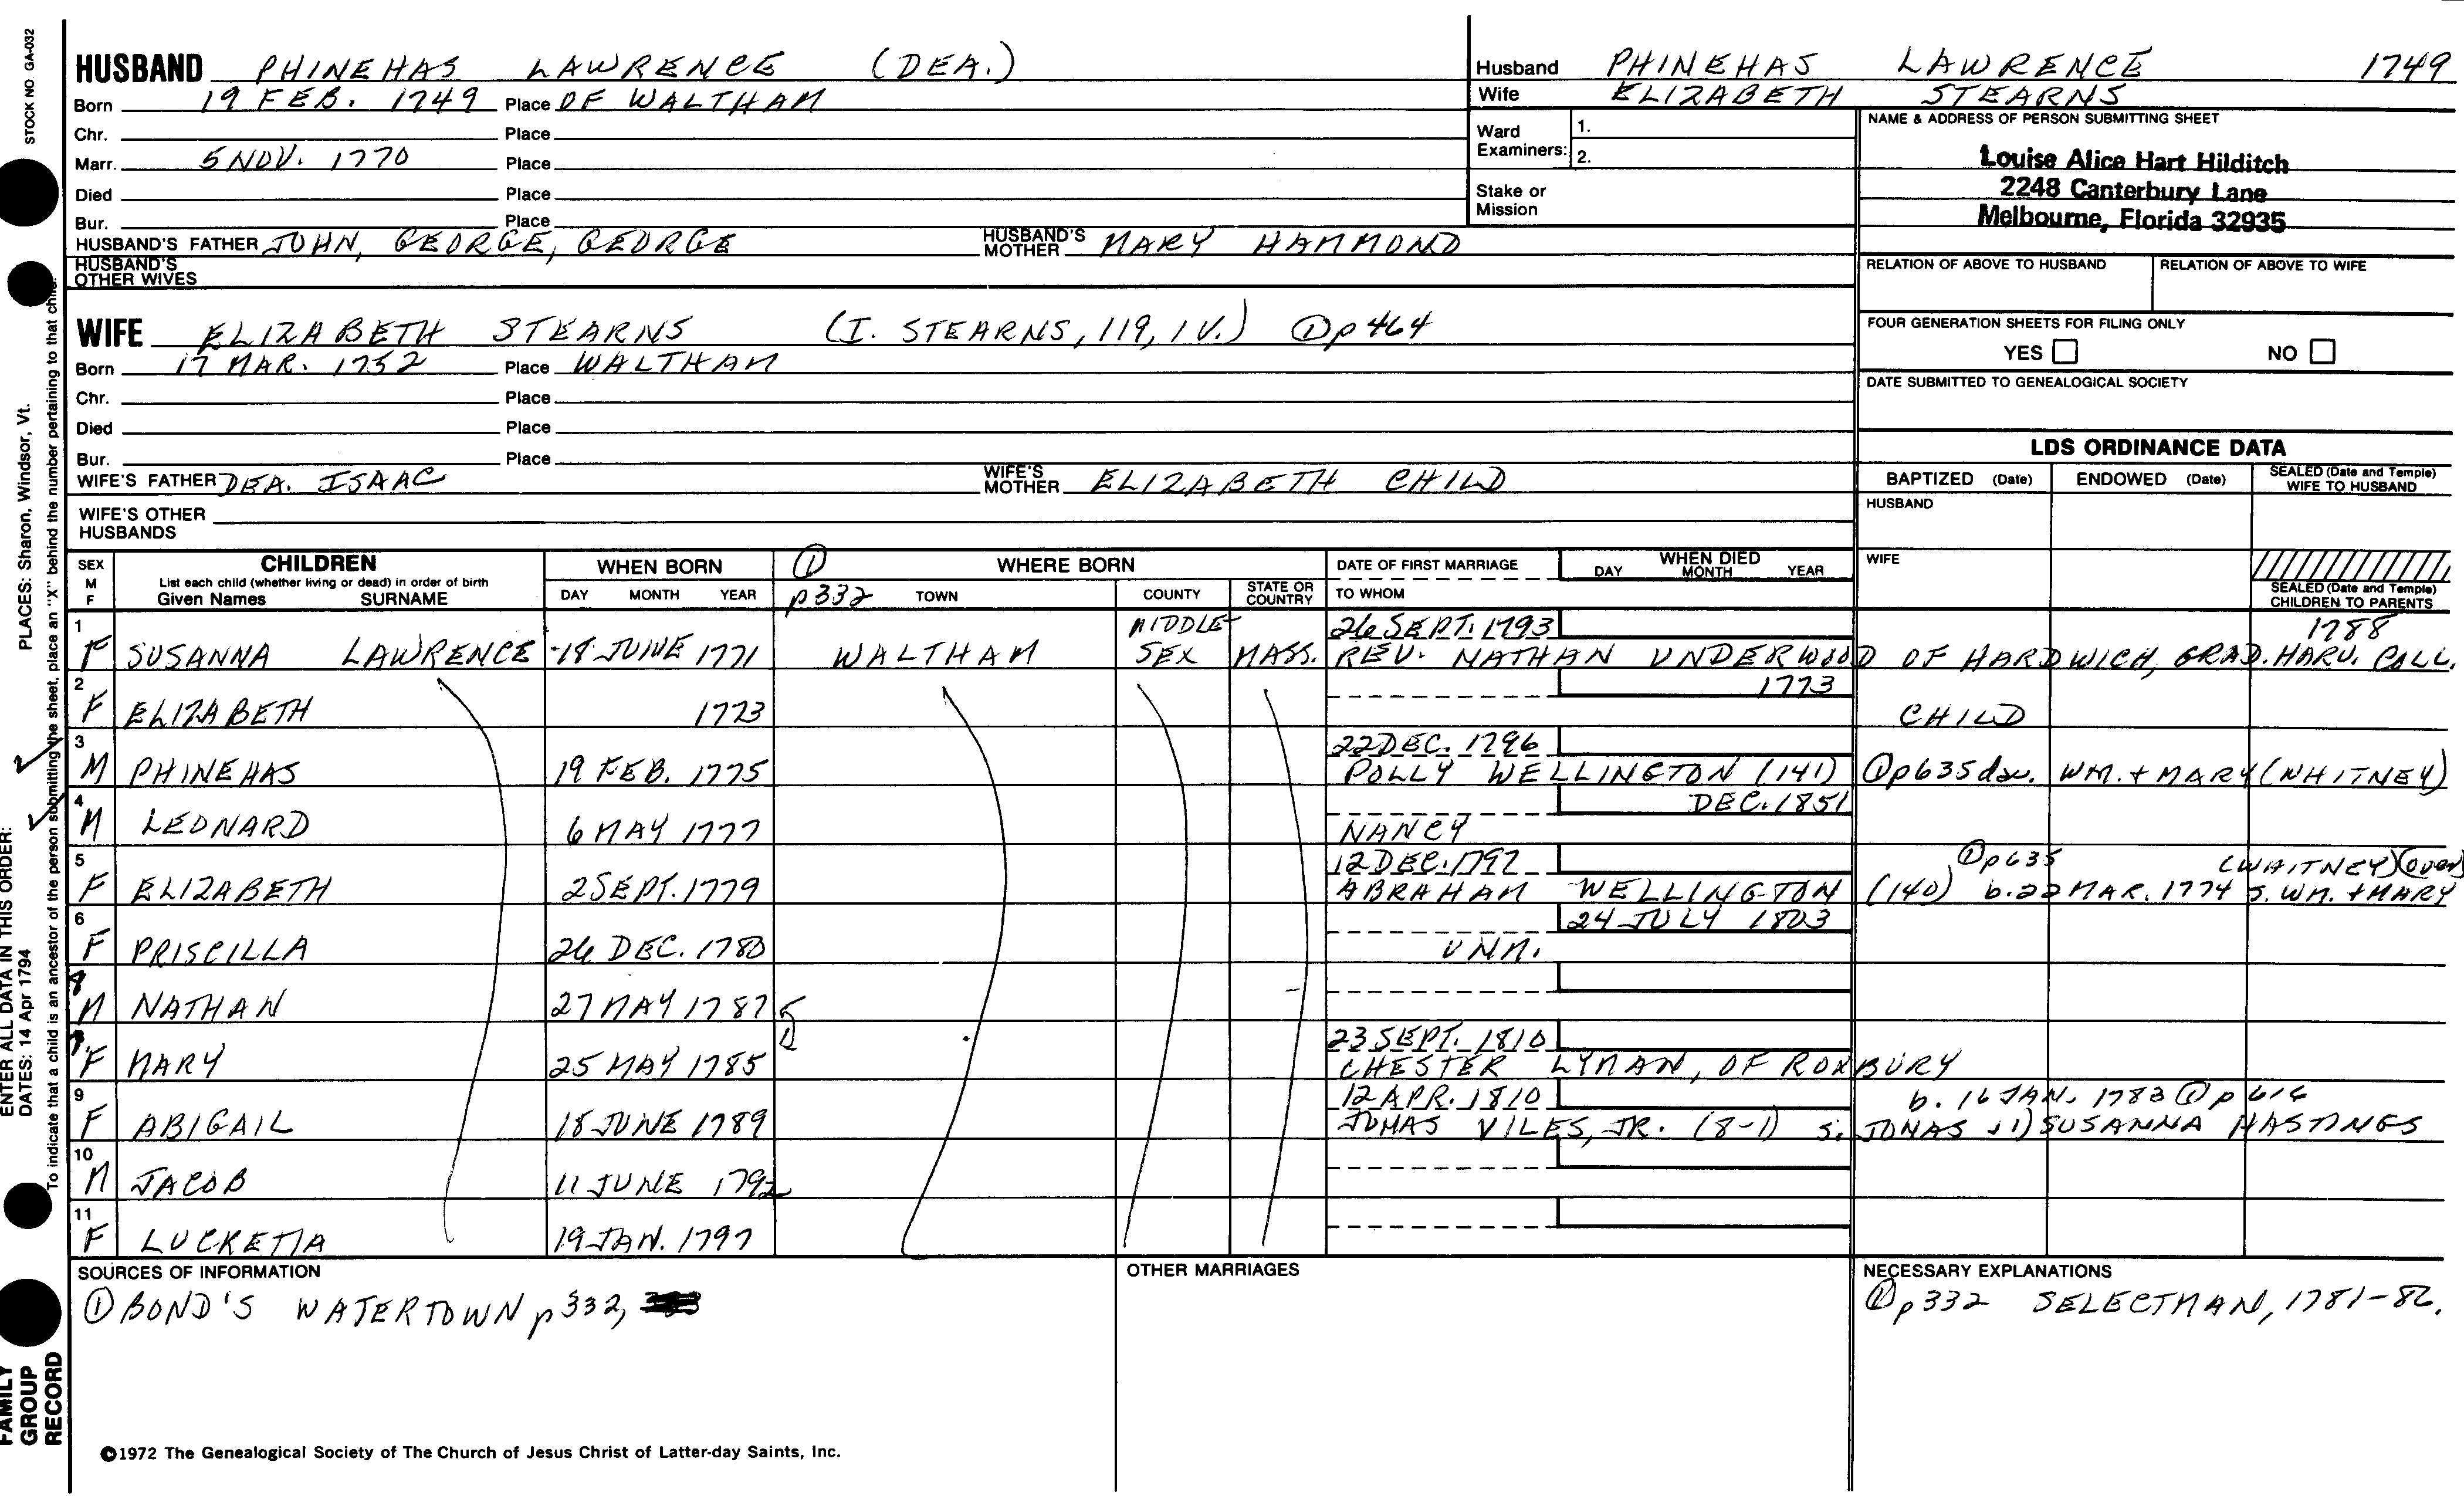 STOCK NO. GA-032
PLACES: Sharon, Windsor, Vt.
ENTER ALL DATA IN THIS ORDER:
DATES: 14 Apr 1794
To indicate that a child is an ancestor of the person submitting the sheet, place an "X" behind the number pertaining to that child.
FAMILY
GROUP
RECORD
HUSBAND PHINEHAS LAWRENCE (DEA.)
Born 19 FEB. 1749 Place OF WALTHAM
Chr. Place
Marr. 5 NOV. 1770 Place
Died Place
Bur. Place
HUSBAND'S FATHER JOHN, GEORGE, GEORGE HUSBAND'S MOTHER MARY HAMMOND
HUSBAND'S
OTHER WIVES
WIFE ELIZABETH STEARNS (I. STEARNS, 119, IV.) ① p 464
Born 17 MAR. 1752 Place WALTHAM
Chr. Place
Died Place
Bur. Place
WIFE'S FATHER DEA. ISAAC WIFE'S MOTHER ELIZABETH CHILD
WIFE'S OTHER
HUSBANDS
Husband PHINEHAS LAWRENCE 1749
Wife ELIZABETH STEARNS
Ward
Examiners:
1.
2.
Stake or
Mission
NAME & ADDRESS OF PERSON SUBMITTING SHEET
Louise Alice Hart Hilditch
2248 Canterbury Lane
Melbourne, Florida 32935
RELATION OF ABOVE TO HUSBAND RELATION OF ABOVE TO WIFE
FOUR GENERATION SHEETS FOR FILING ONLY
YES NO
DATE SUBMITTED TO GENEALOGICAL SOCIETY
LDS ORDINANCE DATA
BAPTIZED (Date) ENDOWED (Date) SEALED (Date and Temple) WIFE TO HUSBAND
HUSBAND
WIFE
SEALED (Date and Temple)
CHILDREN TO PARENTS
SEX
M
F
CHILDREN
List each child (whether living or dead) in order of birth
Given Names SURNAME
WHEN BORN
DAY MONTH YEAR
① p332
WHERE BORN
TOWN COUNTY STATE OR COUNTRY
DATE OF FIRST MARRIAGE
TO WHOM
WHEN DIED
DAY MONTH YEAR
1 MIDDLE- 26 SEPT. 1793 1788
F SUSANNA LAWRENCE 18 JUNE 1771 WALTHAM SEX MASS. REV. NATHAN UNDERWOOD OF HARDWICH, GRAD. HARV. COLL.
2 1773
F ELIZABETH 1773 CHILD
3 22 DEC. 1796
M PHINEHAS 19 FEB. 1775 POLLY WELLINGTON (141) ① p635 dau. WM. + MARY (WHITNEY)
4 DEC. 1851
M LEONARD 6 MAY 1777 NANCY
5 12 DEC. 1797 ① p635 (WHITNEY) (over)
F ELIZABETH 2 SEPT. 1779 ABRAHAM WELLINGTON (140) b. 22 MAR. 1774 S. WM. + MARY
6 24 JULY 1803
F PRISCILLA 26 DEC. 1780 UNM.
8
M NATHAN 27 MAY 1787
7 23 SEPT. 1810
F MARY 25 MAY 1785 CHESTER LYMAN, OF ROXBURY
9 12 APR. 1810 b. 16 JAN. 1783 ① p 616
F ABIGAIL 18 JUNE 1789 JONAS VILES, JR. (8-1) s. JONAS + 1) SUSANNA HASTINGS
10
M JACOB 11 JUNE 1792
11
F LUCRETIA 19 JAN. 1797
SOURCES OF INFORMATION
① BOND'S WATERTOWN p332,
OTHER MARRIAGES
NECESSARY EXPLANATIONS
① p332 SELECTMAN, 1781-86.
©1972 The Genealogical Society of The Church of Jesus Christ of Latter-day Saints, Inc.